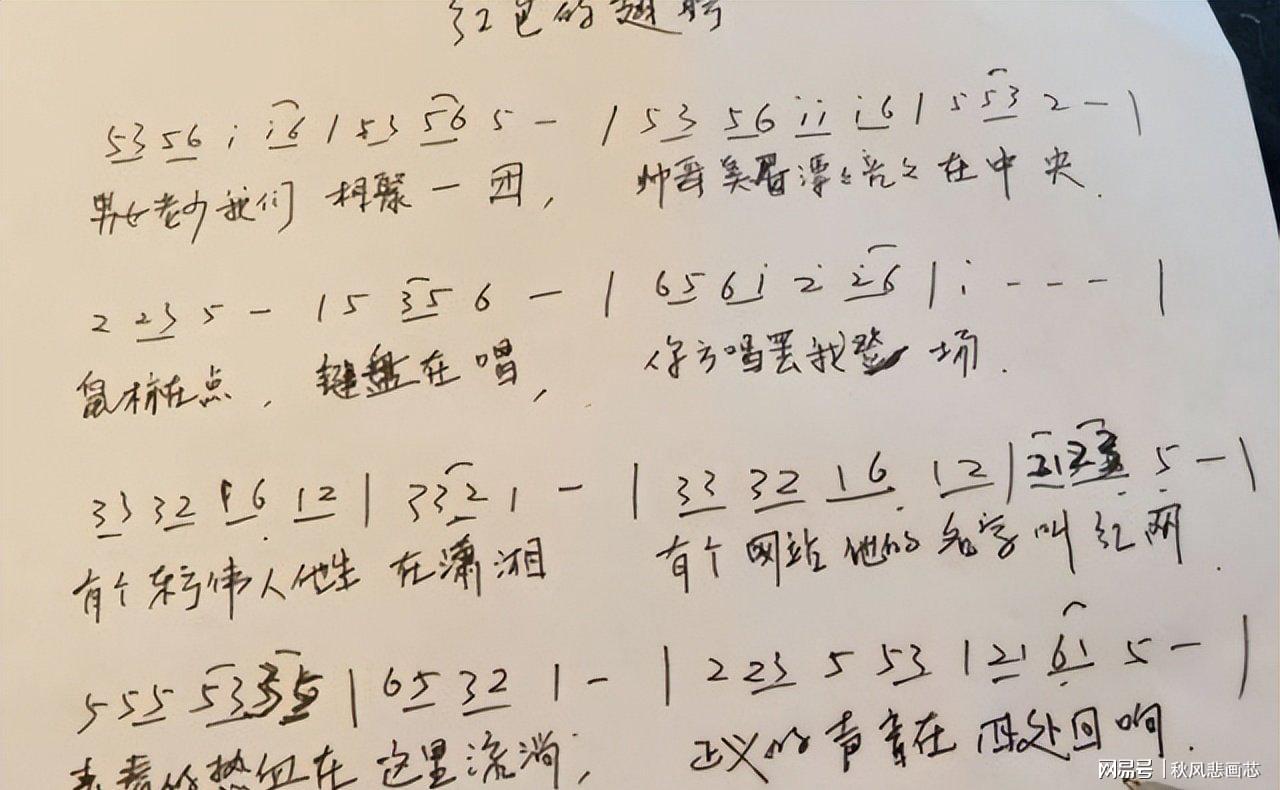 红色的翅膀
53 56 i i6 | 53 56 5 - | 53 56 ii i6 | 5 53 2 - |
男女老少我们 相聚一团, 帅哥美眉漂々亮々在中央.
2 23 5 - | 5 35 6 - | 65 6i 2 26 | i - - - |
鼠标在点, 键盘在唱, 你方唱罢我登场.
33 32 16 12 | 332 1 - | 33 32 16 12 | 5 - |
有个东方伟人他生 在潇湘 有个网站他的名字叫红网.
555 53 35 | 65 32 1 - | 2 23 5 53 | 21 61 5 - |
的热血在这里流淌, 正义的声音在四处回响.
网易号 | 秋风悲画芯